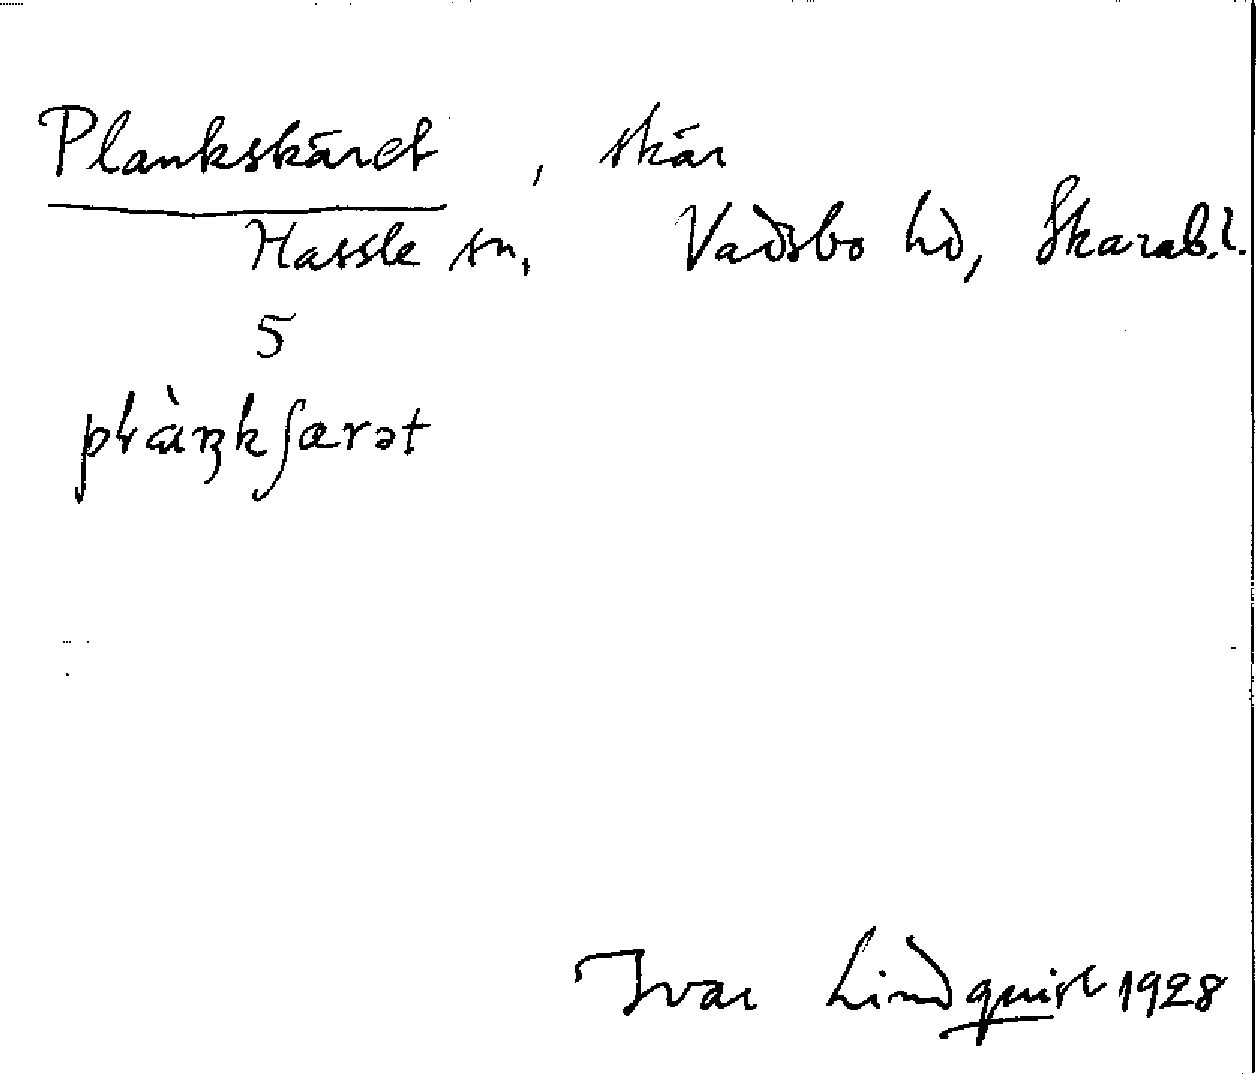 Plankskäret, skär
Hassle sn, Vadsbo hd, Skarab.l.
5
Ivar Lindquist 1928